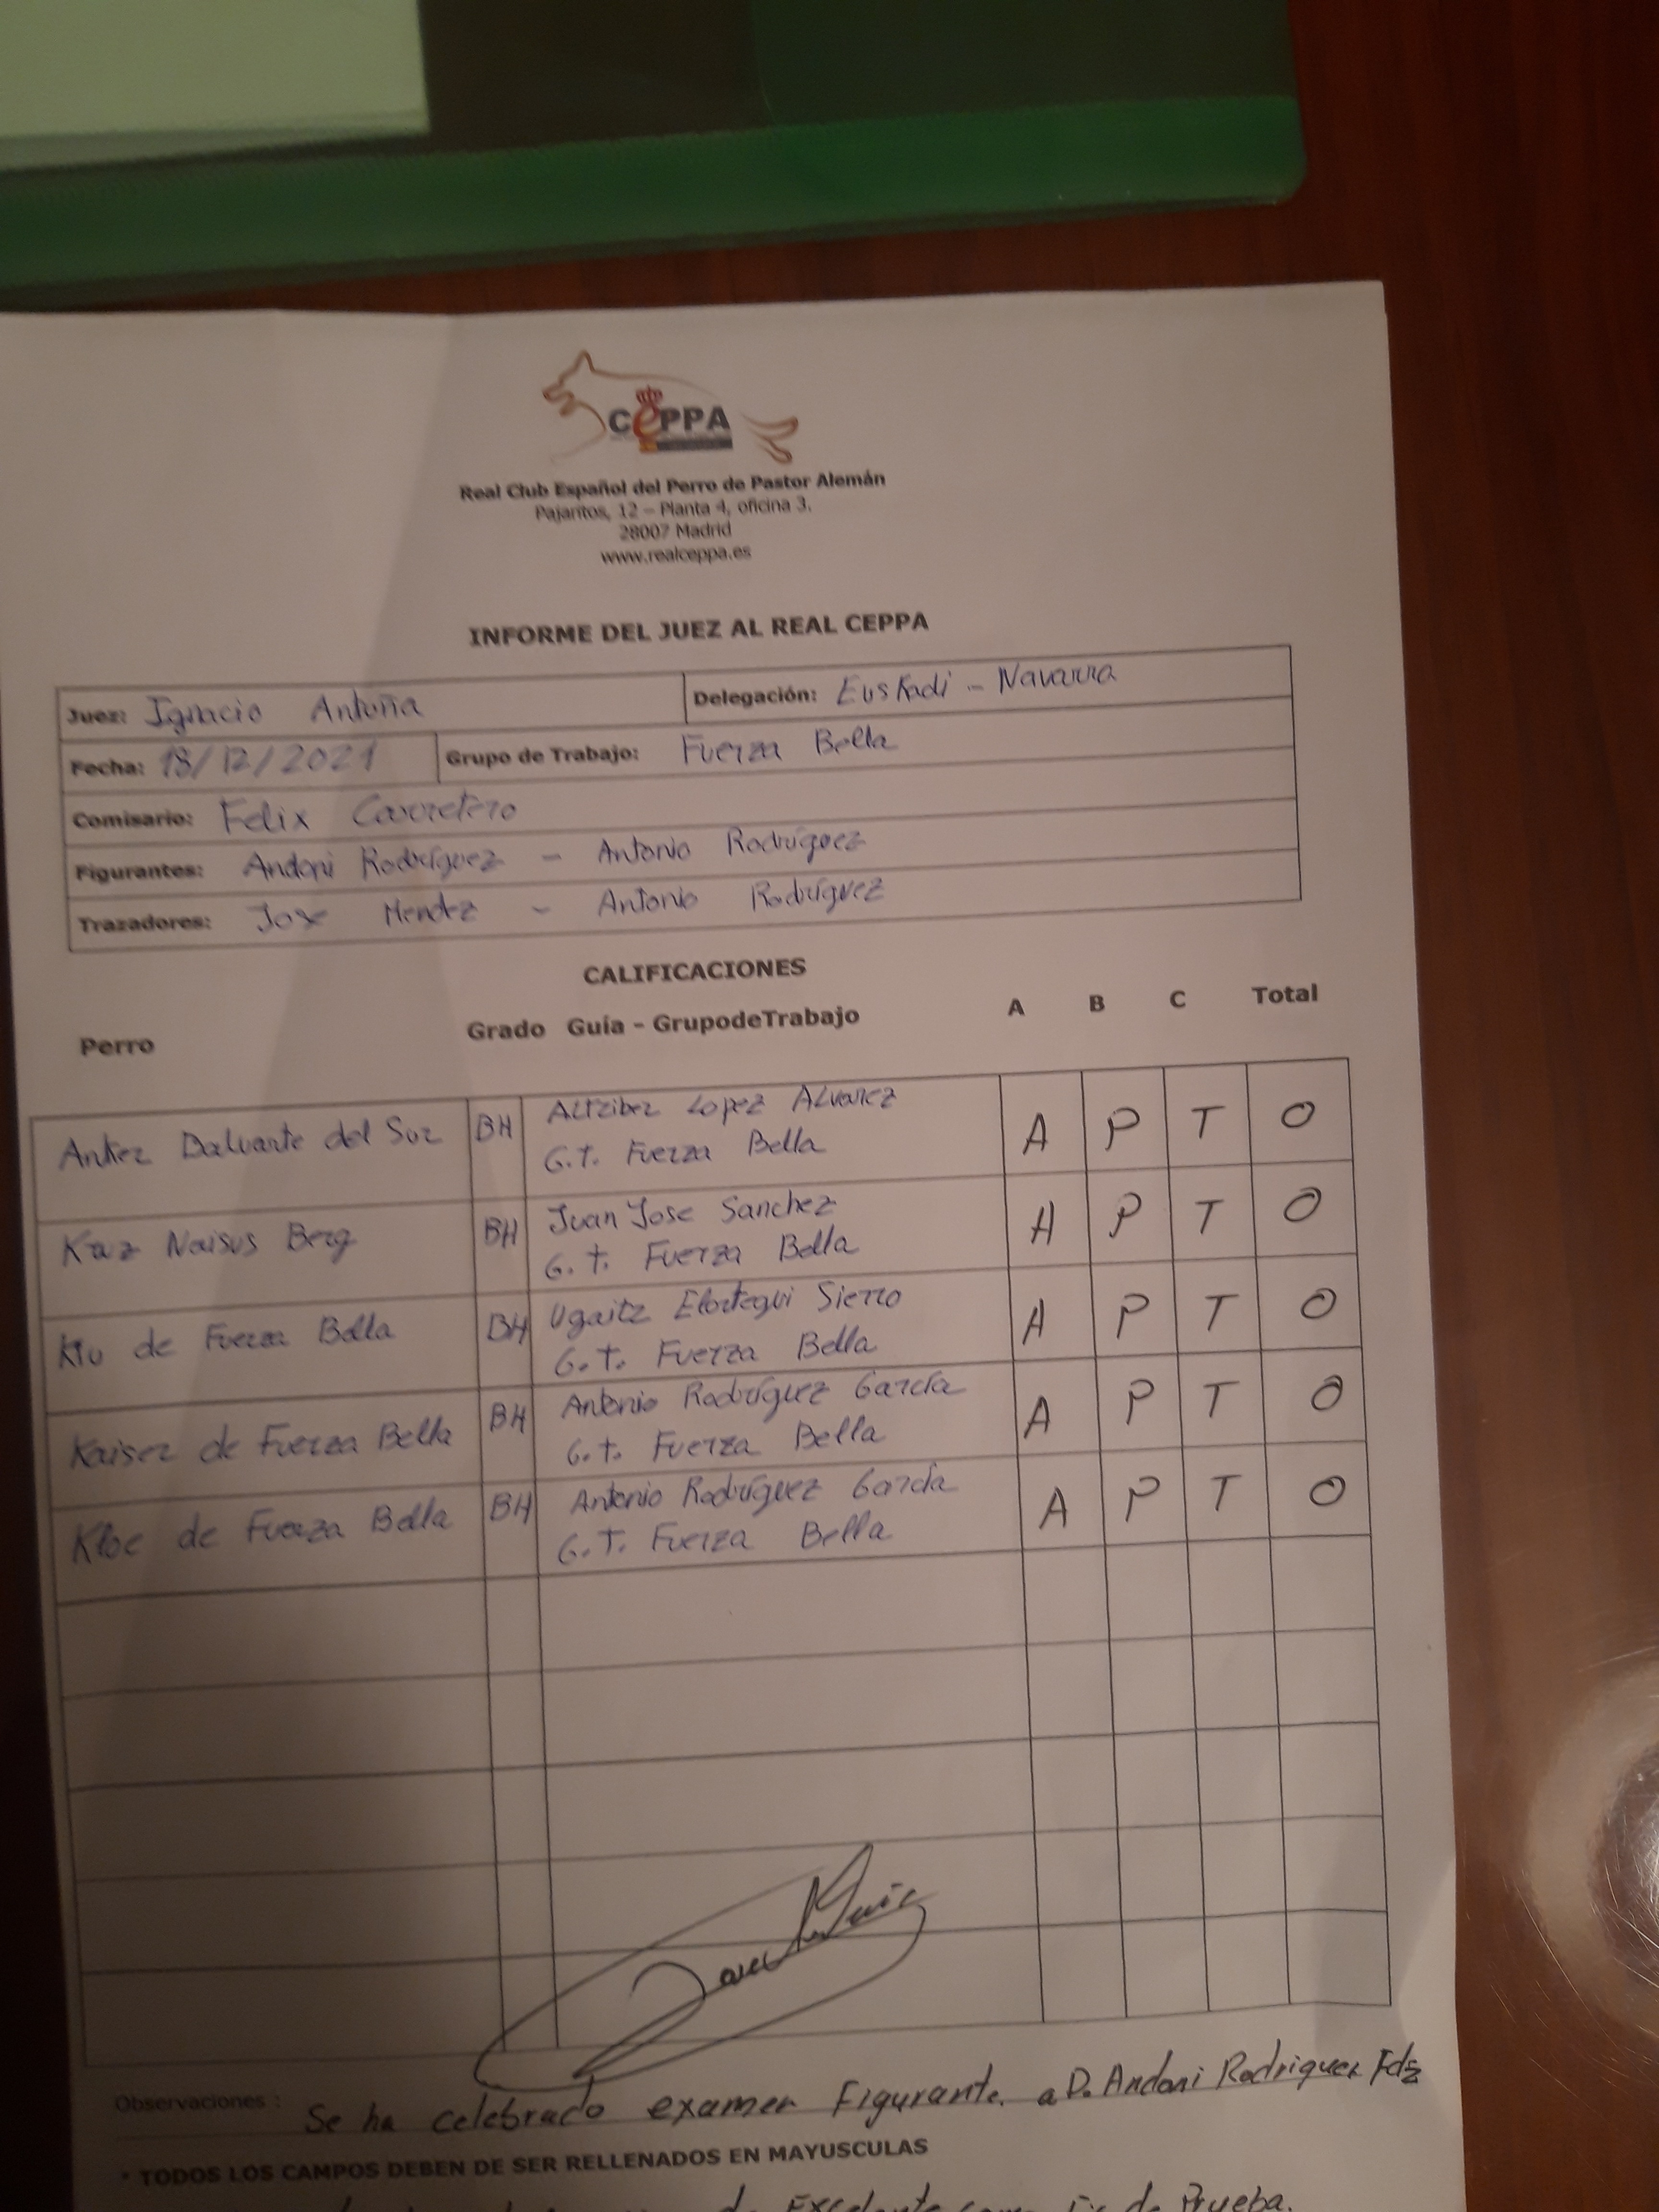 CePPA
Real Club Español del Perro de Pastor Alemán
Pajaritos, 12 – Planta 4, oficina 3.
28007 Madrid
www.realceppa.es
INFORME DEL JUEZ AL REAL CEPPA
Juez: Ignacio Antoña Delegación: Euskadi - Navarra
Fecha: 18/12/2021 Grupo de Trabajo: Fuerza Bella
Comisario: Felix Carretero
Figurantes: Andoni Rodríguez - Antonio Rodríguez
Trazadores: Jose Mendez - Antonio Rodríguez
CALIFICACIONES
Perro Grado Guía - GrupodeTrabajo A B C Total
Altziber Lopez Alvarez
Anker Baluarte del Sur BH A P T O
G.T. Fuerza Bella
Juan Jose Sanchez
Berg BH A P T O
G.T. Fuerza Bella
Ugaitz Elortegui Sierro
de Fuerza Bella BH A P T O
G.T. Fuerza Bella
Antonio Rodríguez García
Kaiser de Fuerza Bella BH A P T O
G.T. Fuerza Bella
Antonio Rodríguez García
Kloe de Fuerza Bella BH A P T O
G.T. Fuerza Bella
Observaciones: Se ha celebrado examen Figurante. a D. Andoni Rodriguez Fdz
* TODOS LOS CAMPOS DEBEN DE SER RELLENADOS EN MAYUSCULAS
Excelente como de Prueba.